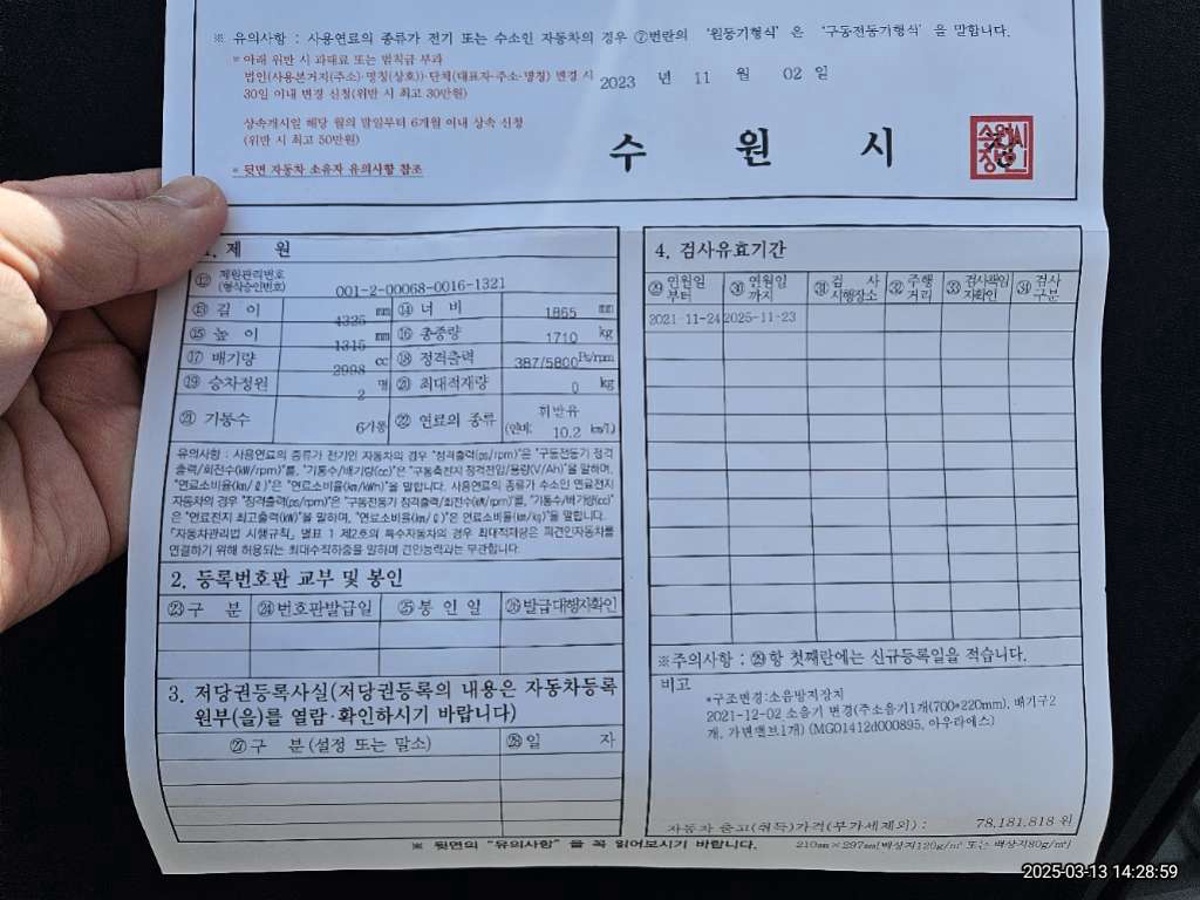 ※ 유의사항 : 사용연료의 종류가 전기 또는 수소인 자동차의 경우 ⑦번란의 '원동기형식' 은 '구동전동기형식' 을 말합니다.
* 아래 위반 시 과태료 또는 범칙금 부과
법인(사용본거지(주소)·명칭(상호))·단체(대표자·주소·명칭) 변경 시
30일 이내 변경 신청(위반 시 최고 30만원)
2023 년 11 월 02 일
상속개시일 해당 월의 말일부터 6개월 이내 상속 신청
(위반 시 최고 50만원)
수 원 시 장
* 뒷면 자동차 소유자 유의사항 참조
1. 제 원
⑫ 제원관리번호
(형식승인번호) 001-2-00068-0016-1321
⑬ 길 이 4325 mm ⑭ 너 비 1865 mm
⑮ 높 이 1315 mm ⑯ 총중량 1710 kg
⑰ 배기량 2998 cc ⑱ 정격출력 387/5800 Ps/rpm
⑲ 승차정원 2 명 ⑳ 최대적재량 0 kg
㉑ 기통수 6기통 ㉒ 연료의 종류 휘발유
(연비: 10.2 km/L)
유의사항 : 사용연료의 종류가 전기인 자동차의 경우 "정격출력(ps/rpm)"은 "구동전동기 정격
출력/회전수(kW/rpm)"를, "기통수/배기량(cc)"은 "구동축전지 정격전압/용량(V/Ah)"을 말하며,
"연료소비율(km/ℓ)"은 "연료소비율(km/kWh)"을 말합니다. 사용연료의 종류가 수소인 연료전지
자동차의 경우 "정격출력(ps/rpm)"은 "구동전동기 정격출력/회전수(kW/rpm)"를, "기통수/배기량(cc)"
은 "연료전지 최고출력(kW)"을 말하며, "연료소비율(km/ℓ)"은 연료소비율(km/kg)"을 말합니다.
「자동차관리법 시행규칙」 별표 1 제2호의 특수자동차의 경우 최대적재량은 피견인자동차를
연결하기 위해 허용되는 최대수직하중을 말하며 견인능력과는 무관합니다.
2. 등록번호판 교부 및 봉인
㉓ 구 분 ㉔ 번호판발급일 ㉕ 봉 인 일 ㉖ 발급대행자확인
3. 저당권등록사실(저당권등록의 내용은 자동차등록
원부(을)를 열람·확인하시기 바랍니다)
㉗ 구 분(설정 또는 말소) ㉘ 일 자
4. 검사유효기간
㉙ 연월일
부터 ㉚ 연월일
까지 ㉛ 검 사
시행장소 ㉜ 주행
거리 ㉝ 검사책임
자확인 ㉞ 검사
구분
2021-11-24 2025-11-23
※주의사항 : ㉙항 첫째란에는 신규등록일을 적습니다.
비고
*구조변경:소음방지장치
2021-12-02 소음기 변경(주소음기1개(700*220mm), 배기구2
개, 가변밸브1개) (MG01412d000895, 아우라에스)
자동차 출고(취득)가격(부가세제외) : 78,181,818 원
※ 뒷면의 "유의사항" 을 꼭 읽어보시기 바랍니다.
210㎜ × 297㎜[백상지120g/㎡ 또는 백상지80g/㎡]
2025-03-13 14:28:59